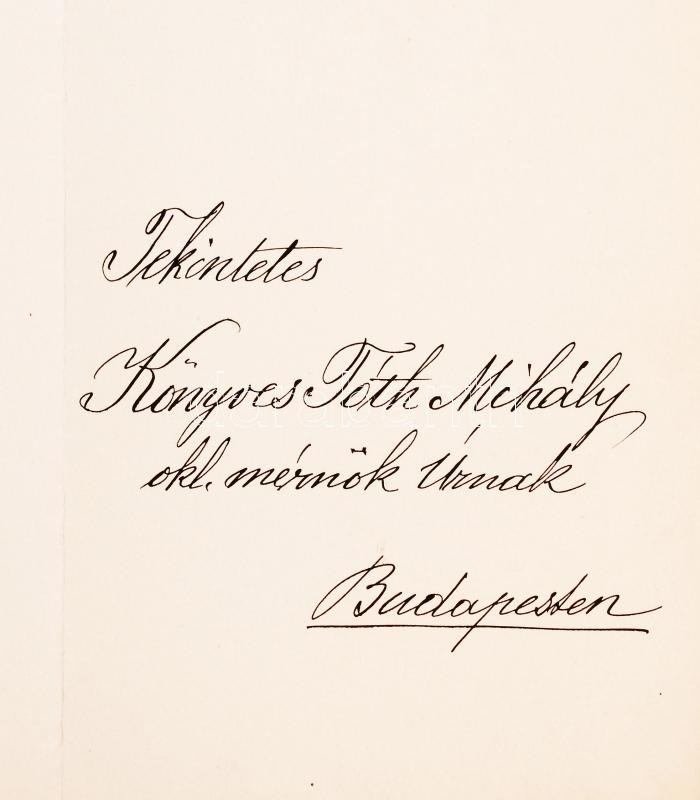 Tekintetes
Könyves Tóth Mihály
okl. mérnök Úrnak
Budapesten